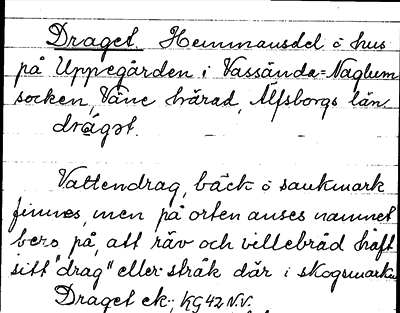 Draget Hemmansdel o hus
på Uppegården i Vassända-Naglum
socken, Väne härad, Älfsborgs län
drágət.
Vattendrag, bäck o sankmark
finnes, men på orten anses namnet
bero på, att räv och villebråd haft
sitt "drag" eller stråk där i skogsmarken
Draget ek., KG42 N.V.